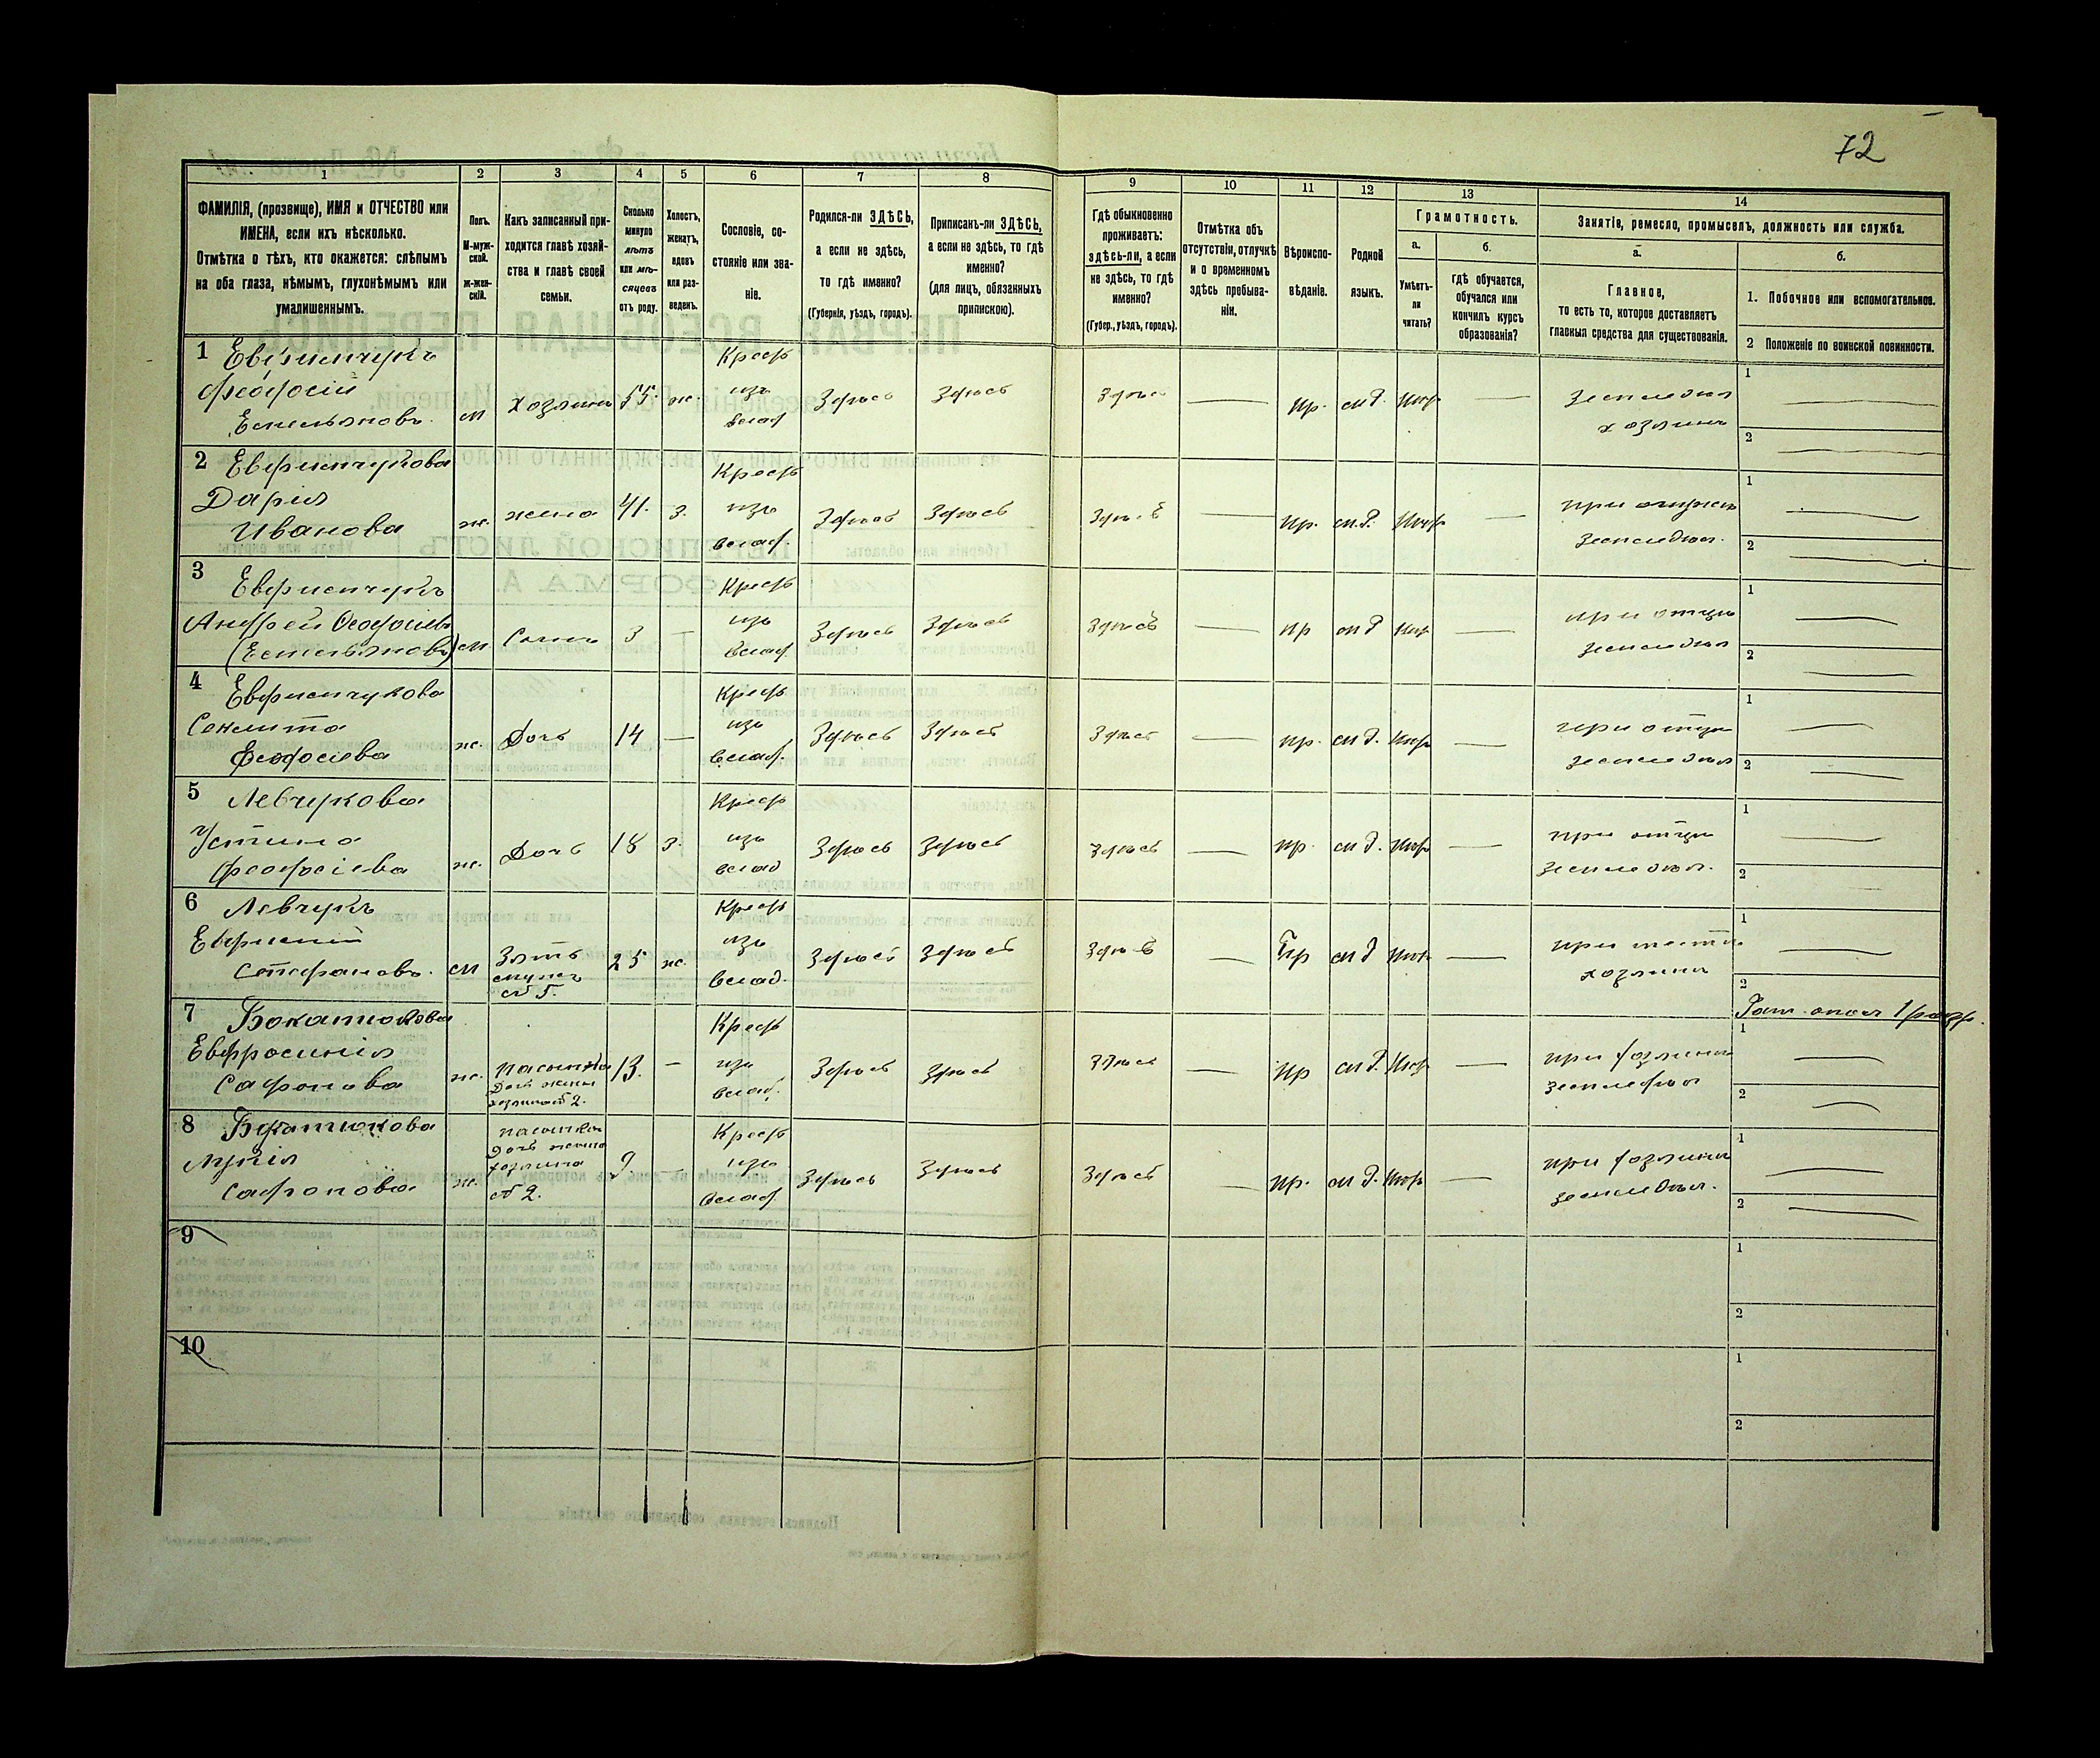 72
1 2 3 4 5 6 7 8 9 10 11 12 13 14
ФАМИЛІЯ, (прозвище), ИМЯ и ОТЧЕСТВО или
ИМЕНА, если ихъ нѣсколько.
Отмѣтка о тѣхъ, кто окажется: слѣпымъ
на оба глаза, нѣмымъ, глухонѣмымъ или
умалишеннымъ.
Полъ.
М-муж-
ской.
ж-жен-
скій.
Какъ записанный при-
ходится главѣ хозяй-
ства и главѣ своей
семьи.
Сколько
минуло
лѣтъ
или мѣ-
сяцевъ
отъ роду.
Холостъ,
женатъ,
вдовъ
или раз-
веденъ.
Сословіе, со-
стояніе или зва-
ніе.
Родился-ли ЗДѢСЬ,
а если не здѣсь,
то гдѣ именно?
(Губернія, уѣздъ, городъ).
Приписанъ-ли ЗДѢСЬ,
а если не здѣсь, то гдѣ
именно?
(для лицъ, обязанныхъ
припискою).
Гдѣ обыкновенно
проживаетъ:
здѣсь-ли, а если
не здѣсь, то гдѣ
именно?
(Губер., уѣздъ, городъ).
Отмѣтка объ
отсутствіи, отлучкѣ
и о временномъ
здѣсь пребыва-
ніи.
Вѣроиспо-
вѣданіе.
Родной
языкъ.
Грамотность.
а.
Умѣетъ-
ли
читать?
б.
гдѣ обучается,
обучался или
кончилъ курсъ
образованія?
Занятіе, ремесло, промыселъ, должность или служба.
а.
Главное,
то есть то, которое доставляетъ
главныя средства для существованія.
б.
1. Побочное или вспомогательное.
2 Положеніе по воинской повинности.
1 Евфимчукъ
Феодосій
Емельяновъ м хозяинъ 55 ж. Крест изъ владѣ Здѣсь Здѣсь Здѣсь — пр. мд. — Земледѣл хозяинъ 1 — 2 —
2 Евфимчукова
Дарія
Иванова ж. жена 41. з. Крестъ изъ владѣ. Здѣсь Здѣсь Здѣсь — пр. мд. — при мужѣ земледѣл. 1 — 2 —
3 Евфимчукъ
Андрей Ѳеодосіевъ
(Емельяновъ) м Сынъ 3 — Крестъ изъ владѣ. Здѣсь Здѣсь Здѣсь — пр мд — при отцѣ земледѣл 1 — 2 —
4 Евфимчукова
Феодосіева ж. Дочь 14 — Крестъ изъ владѣ. Здѣсь Здѣсь Здѣсь — пр. мд. — при отцѣ земледѣл 1 — 2 —
5 Левчукова
Устина
Феодосіева ж. Дочь 18 з. Крест изъ влад Здѣсь Здѣсь Здѣсь — пр. мд. — при отцѣ земледѣл. 1 — 2
6 Левчукъ
Евфимій
Стефановъ. м Зять мужъ 5. 25 ж. Крест изъ влад. Здѣсь Здѣсь Здѣсь — Пр мд — при тестѣ хозяинъ 1 — 2
Рат. опол 1 разр.
7 Бокатюкова
Евфросинія
Сафонова ж. дочь жены хозяина 2. 13. — Крестъ изъ владѣ. Здѣсь Здѣсь Здѣсь — пр мд. — при хозяинѣ земледѣл 1 — 2 —
8 Бокатюкова
Лукія
Сафонова ж. дочь жены хозяина 2. 9. — Крестъ изъ владѣ Здѣсь Здѣсь Здѣсь — пр. мд. — при хозяинѣ земледѣл. 1 — 2 —
9 1 2
10 1 2